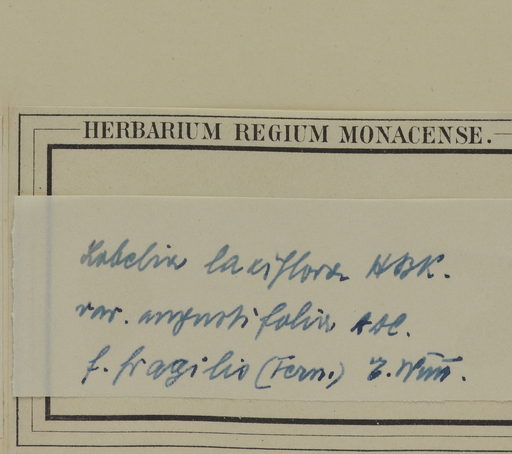 HERBARIUM REGIUM MONACENSE.
Lobelia laxiflora HBK.
var. angustifolia ADC.
f. fragilis (Fern.) E. Wimm.